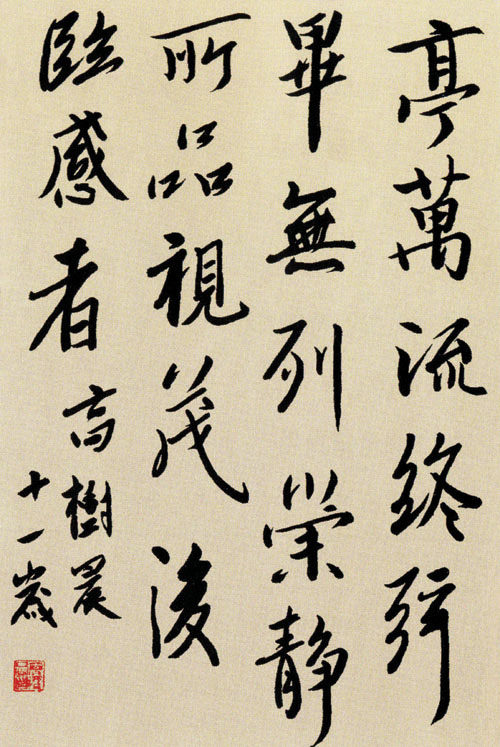 亭萬流終弦
畢無列崇静
所品視茂後
臨感者
高樹晨
十一歲